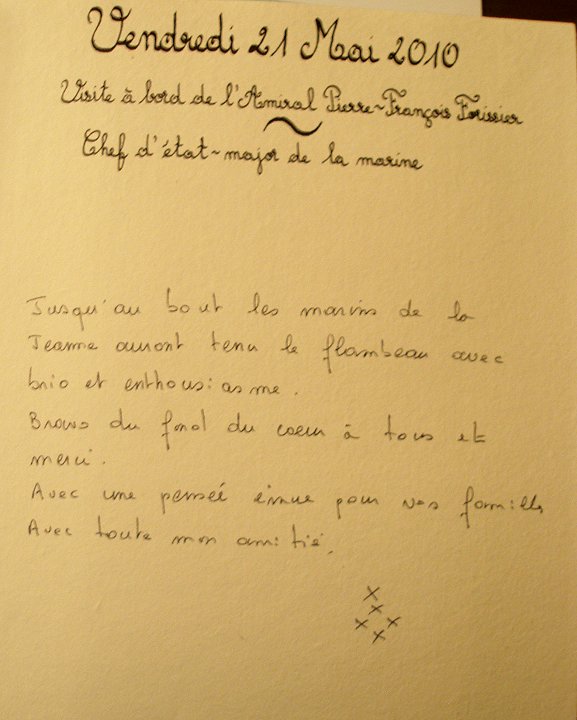 Vendredi 21 Mai 2010
Visite à bord de l'Amiral Pierre~François Forissier
Chef d'état~major de la marine
Jusqu'au bout les marins de la
Jeanne auront tenu le flambeau avec
brio et enthousiasme.
Bravo du fond du coeur à tous et
merci.
Avec une pensée émue pour vos familles
Avec toute mon amitié.